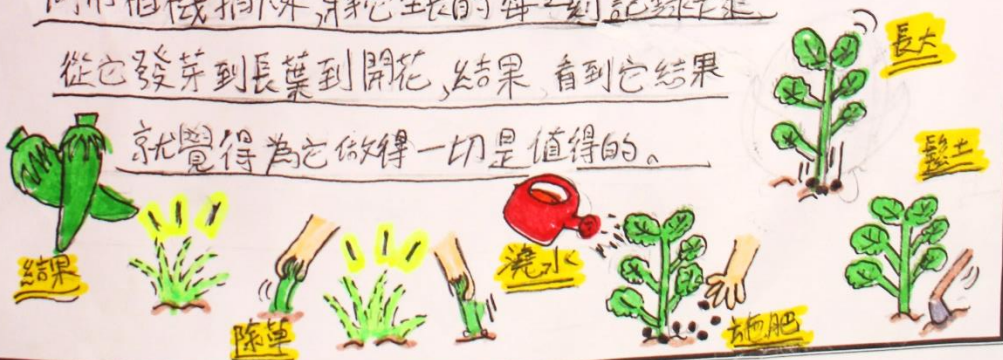 從它發芽到長葉到開花,結果,看到它結果
就覺得為它做得一切是值得的。
長大
鬆土
澆水
結果
除草
施肥